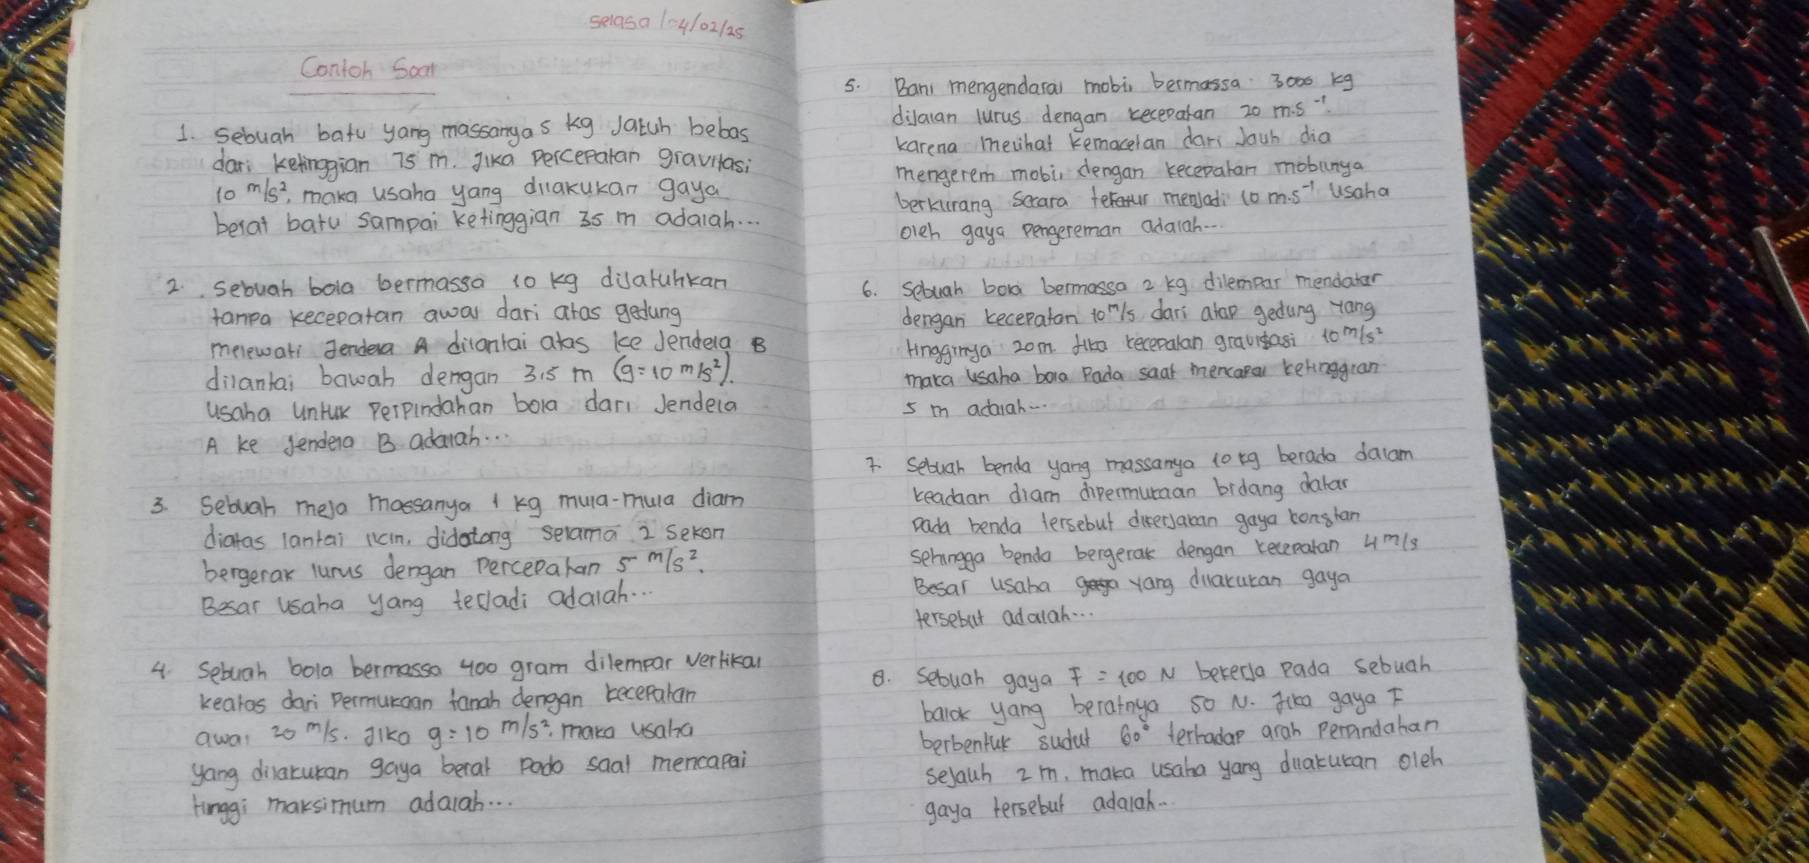 Selasa / 4/02/25
Contoh Soal
1. Sebuah batu yang massanya 5 kg Jatuh bebas
dari ketinggian 75 m. Jika percepatan gravitasi
10 m/s², maka usaha yang dilakukan gaya
berat batu sampai ketinggian 35 m adalah...
2. Sebuah bola bermassa 10 kg dijatuhkan
tanpa kecepatan awal dari atas gedung
melewati Jendela A dilantai atas ke Jendela B
dilantai bawah dengan 3,5 m (g = 10 m/s²).
Usaha untuk Perpindahan bola dari Jendela
A ke Jendela B adalah...
3. Sebuah meja massanya 1 kg mula-mula diam
diatas lantai licin, didotong selama 2 sekon
bergerak lurus dengan Percepatan 5 m/s².
Besar usaha yang terjadi adalah...
4. Sebuah bola bermassa 400 gram dilempar vertikal
keatas dari Permukaan tanah dengan kecepatan
awal 20 m/s. Jika g = 10 m/s², maka usaha
yang dilakukan gaya berat pada saat mencapai
tinggi maksimum adalah...
5. Bani mengendarai mobil bermassa 3000 kg
dijalan lurus dengan kecepatan 20 m.s⁻¹.
karena melihat kemacetan dari Jauh dia
mengerem mobil dengan kecepatan mobilnya
berkurang secara teratur menjadi 10 m.s⁻¹ Usaha
oleh gaya Pengereman adalah...
6. Sebuah bola bermassa 2 kg dilempar mendatar
dengan kecepatan 10 m/s dari atap gedung Yang
tingginya 20 m Jika kecepatan gravitasi 10 m/s²
maka usaha bola Pada saat mencapai ketinggian
5 m adalah...
7. Sebuah benda yang massanya 10 kg berada dalam
keadaan diam dipermukaan bidang datar
Pada benda tersebut dikerjakan gaya konstan
sehingga benda bergerak dengan kecepatan 4 m/s
Besar usaha yang dilakukan gaya
tersebut adalah...
8. Sebuah gaya F = 100 N bekerja Pada sebuah
balok yang beratnya 50 N. Jika gaya F
berbentuk sudut 60° terhadap arah Perpindahan
sejauh 2 m, maka usaha yang dilakukan oleh
gaya tersebut adalah..